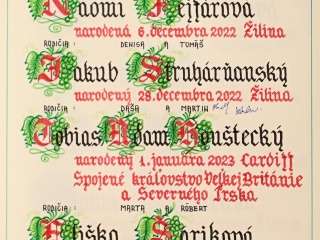 Naomi Fejfárová
narodená 6. decembra 2022 Žilina
RODIČIA DENISA A TOMÁŠ
Jakub Struhárňanský
narodený 28. decembra 2022 Žilina
RODIČIA DAŠA A MARTIN
Tobias Adam Houštecký
narodený 1. januára 2023 Cardiff
Spojené kráľovstvo Veľkej Británie
a Severného Írska
RODIČIA MARTA A RÓBERT
Eliška Sáriková